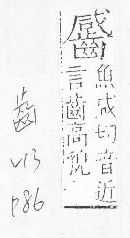 魚咸切音近
言齒高皃
齒
v13
p86